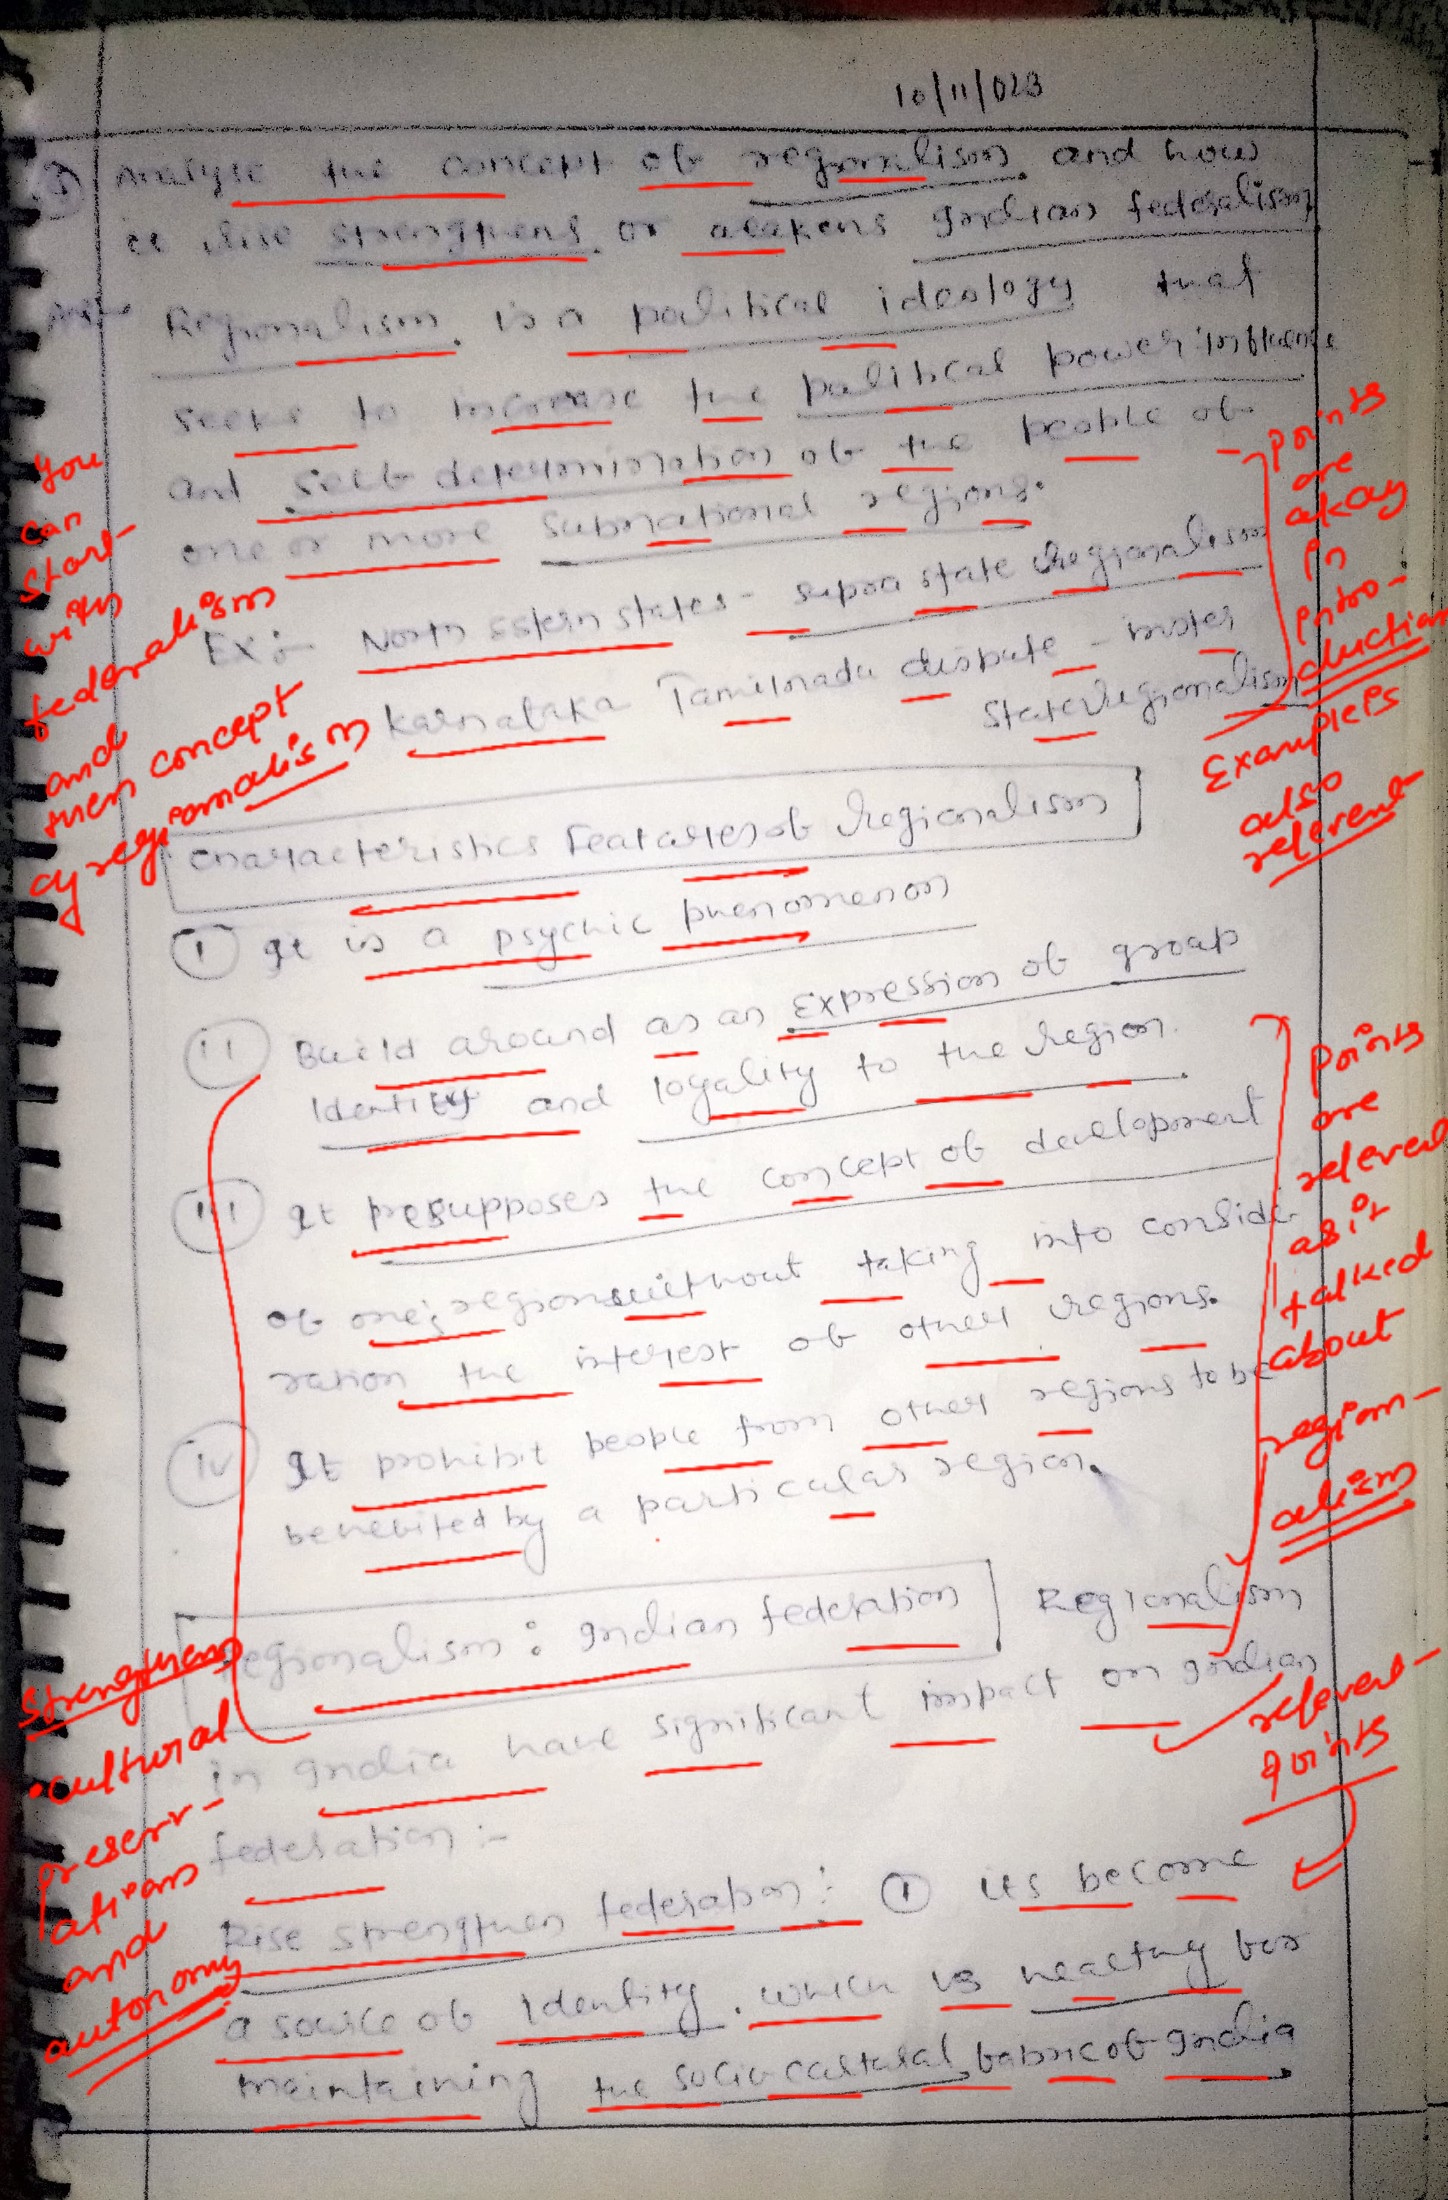 10/11/023
Analyse the concept ob regionalism and how
its rise strengthens or weakens Indian federalism
Ans
Regionalism is a political ideology that
seeks to increase the political power influence
and selb determination ob the people ob
one or more subnational regions.
Ex:- North Estern states - supra state regionalism
Karnataka Tamilnadu dispute - inster
state regionalism
You
can
start
with
federalism
and
then concept
of regionalism
Points
are
okay
in
intro-
duction
Examples
also
relevent
Characteristics Features ob Regionalism
(i) It is a psychic phenomenon
(ii) Build around as an Expression ob group
Identity and loyality to the region.
(iii) It presupposes the concept ob development
ob one's regions without taking into conside
ration the interest ob other regions.
(iv) It prohibit people from other regions to be
benebited by a particular region.
Points
are
relevent
as it
talked
about
region-
alism
Regionalism : Indian federation Regionalism
in India have significant impact on Indian
federation :-
Rise strengthen federation : (1) its become
a source ob Identity . which is healthy bor
maintaining the socio cultural babric ob India
Strengthens
• cultural
preserv-
ations
and
autonomy
relevent
points